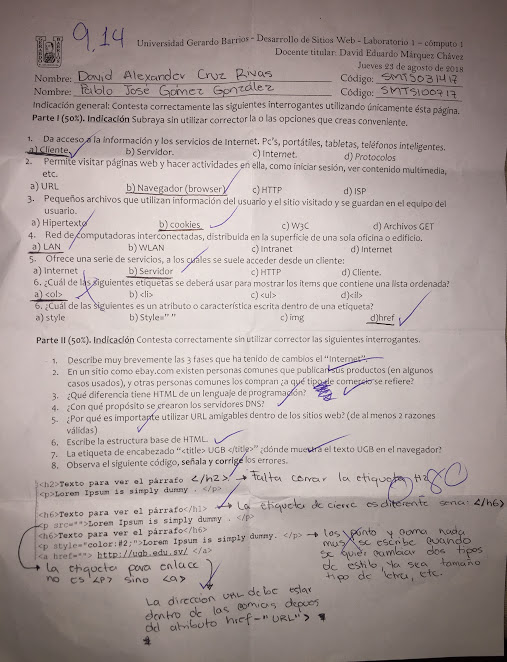 9,14
Universidad Gerardo Barrios - Desarrollo de Sitios Web - Laboratorio 1 - cómputo 1
Docente titular: David Eduardo Márquez Chávez
Jueves 23 de agosto de 2018
Nombre: David Alexander Cruz Rivas Código: SMTS031417
Nombre: Pablo José Gómez González Código: SMTS100717
Indicación general: Contesta correctamente las siguientes interrogantes utilizando únicamente ésta página.
Parte I (50%). Indicación Subraya sin utilizar corrector la o las opciones que creas conveniente.
1. Da acceso a la información y los servicios de Internet. Pc's, portátiles, tabletas, teléfonos inteligentes.
a) Cliente b) Servidor. c) Internet. d) Protocolos
2. Permite visitar páginas web y hacer actividades en ella, como iniciar sesión, ver contenido multimedia,
etc.
a) URL b) Navegador (browser) c) HTTP d) ISP
3. Pequeños archivos que utilizan información del usuario y el sitio visitado y se guardan en el equipo del
usuario.
a) Hipertexto b) cookies c) W3C d) Archivos GET
4. Red de computadoras interconectadas, distribuida en la superficie de una sola oficina o edificio.
a) LAN b) WLAN c) Intranet d) Internet
5. Ofrece una serie de servicios, a los cuales se suele acceder desde un cliente:
a) Internet b) Servidor c) HTTP d) Cliente.
6. ¿Cuál de las siguientes etiquetas se deberá usar para mostrar los ítems que contiene una lista ordenada?
a) <ol> b) <li> c) <ul> d)<il>
6. ¿Cuál de las siguientes es un atributo o característica escrita dentro de una etiqueta?
a) style b) Style=" " c) img d)href
Parte II (50%). Indicación Contesta correctamente sin utilizar corrector las siguientes interrogantes.
1. Describe muy brevemente las 3 fases que ha tenido de cambios el "Internet".
2. En un sitio como ebay.com existen personas comunes que publican sus productos (en algunos
casos usados), y otras personas comunes los compran ¿a qué tipo de comercio se refiere?
3. ¿Qué diferencia tiene HTML de un lenguaje de programación?
4. ¿Con qué propósito se crearon los servidores DNS?
5. ¿Por qué es importante utilizar URL amigables dentro de los sitios web? (de al menos 2 razones
válidas)
6. Escribe la estructura base de HTML.
7. La etiqueta de encabezado "<title> UGB </title>" ¿dónde muestra el texto UGB en el navegador?
8. Observa el siguiente código, señala y corrige los errores.
<h2>Texto para ver el párrafo </h2> → Falta cerrar la etiqueta H2
<p>Lorem Ipsum is simply dummy . </p>
<h6>Texto para ver el párrafo</h1> → La etiqueta de cierre es diferente seria: </h6>
<p src="">Lorem Ipsum is simply dummy . </p>
<h6>Texto para ver el párrafo</h6>
<p style="color:#2;">Lorem Ipsum is simply dummy. </p> → los punto y coma nada
mas se escribe cuando
<a href=""> http://ugb.edu.sv/ </a> se quier cambiar dos tipos
de estilo, Ya sea tamaño
tipo de letra, etc.
→ La etiqueta para enlace
no es <P> sino <a>
La dirección URL debe estar
dentro de las comias depues
del atributo href="URL">